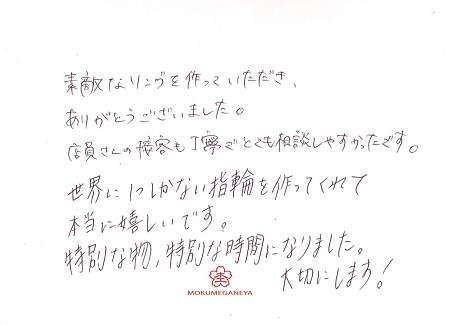 素敵なリングを作っていただき、
ありがとうございました。
店員さんの接客も丁寧でとても相談しやすかったです。
世界に1つしかない指輪を作ってくれて
本当に嬉しいです。
特別な物、特別な時間になりました。
大切にします!
MOKUMEGANEYA